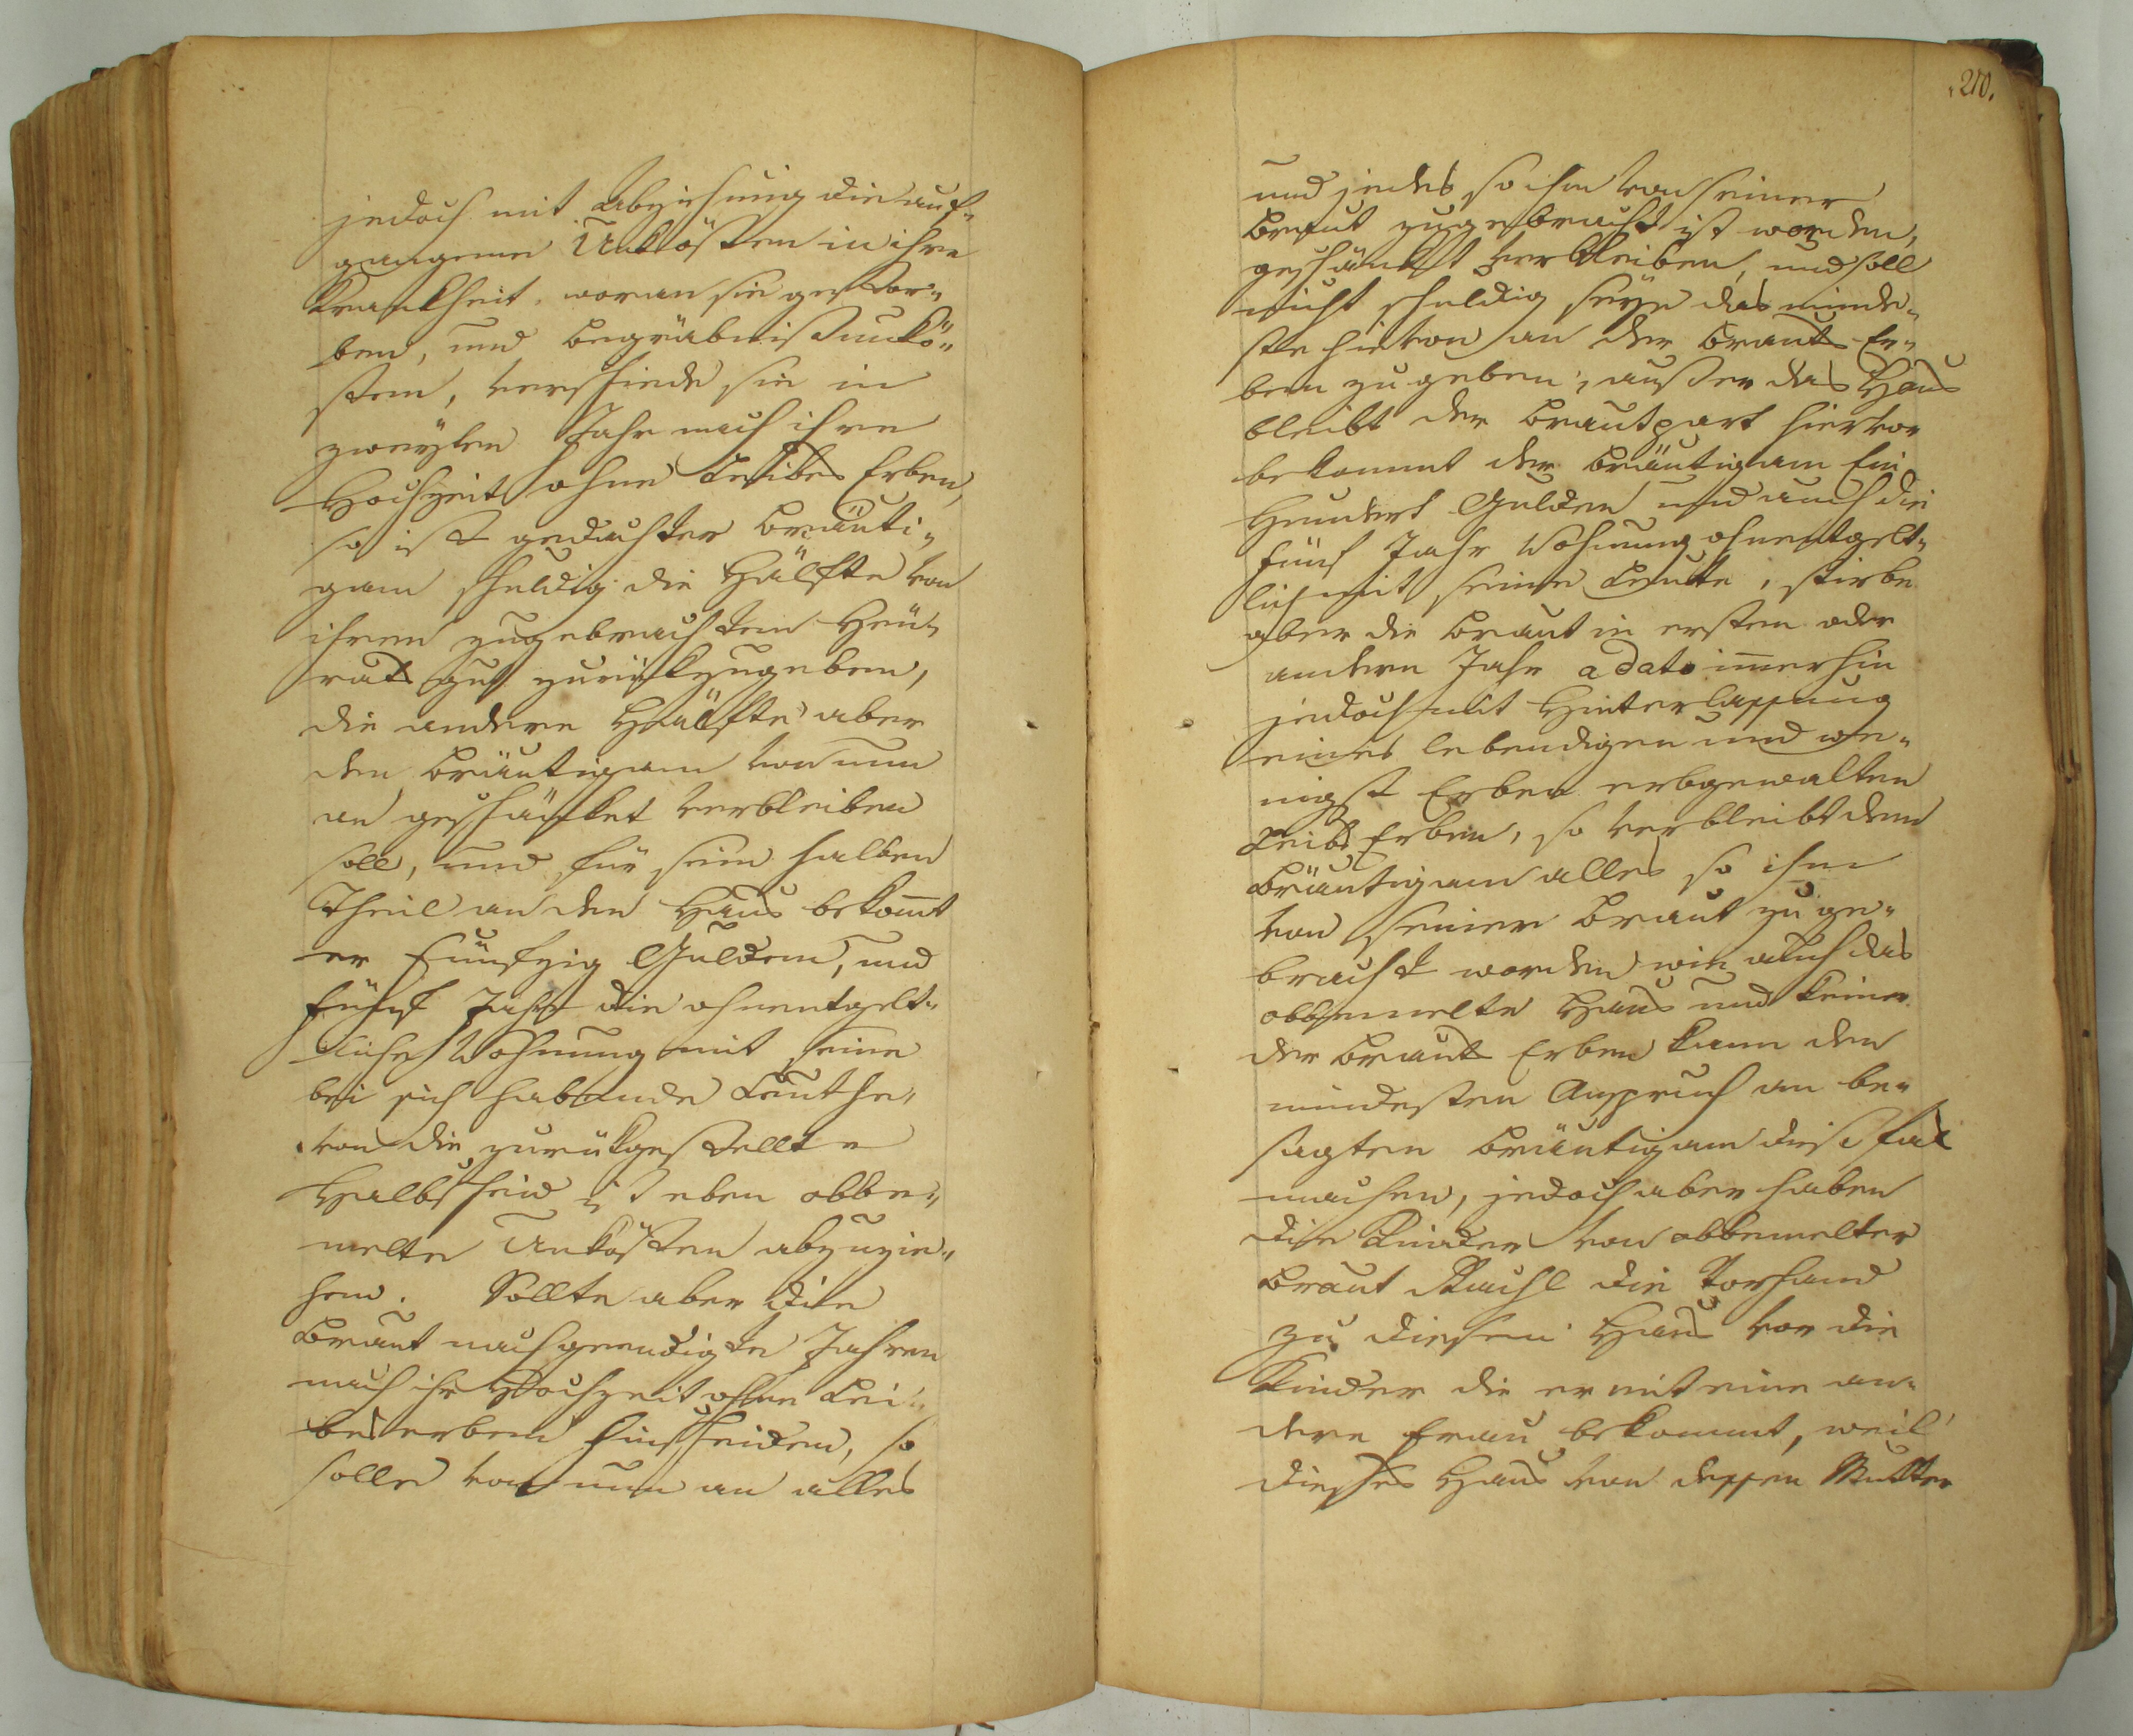 jedoch mit Abziehung die auf„
gangenen Unkösten in ihre
Krankheit, woran sie gestor„
ben, und Begräbnißunkö„
sten, verschiede sie in
zweyten Jahr nach ihre
Hochzeit ohne Leibes Erben,
so ist gedachter Bräuti„
gam schuldig die Hälfte von
ihren zugebrachten Heu„
rats gut zurückzugeben,
die andere Hälfte aber
den Bräutigam von nun
an geschänket verbleiben
soll, und für sein halben
Theil an den Haus bekomt
er Fünfzig Gulden, und
fünf Jahr die ohnentgelt„
liche Wohnung mit seine
bei sich habende Leuthe„
von die zurükgestellte
Halbscheid ist eben obbe„
melte Unkösten abzuzie„
hen. Sollte aber die
Braut nach geendigte Jahren
nach ihr Hochzeit ohne Lei„
beserben hinscheiden, so
solle von nun an alles
210.
und jedes so ihm von seiner
Braut zugebracht ist worden,
geschänkt verbleiben, und soll
nicht schuldig seye das minde„
ste hievon an der Brauts Er„
ben zu geben, außer das Haus
bleibt der Brautpart hiervor
bekommt der Bräutigam Ein
Hundert Gulden und auch die
fünf Jahr Wohnung ohnentgelt„
lich mit seine Leute, stirbe
aber die Braut in ersten oder
andern Jahr a dato immerhin
jedoch mit Hinterlassung
eines lebendigen und we„
nigst Erben erbgewalten
Leibs Erben, so verbleibt dem
Bräutigam alles so ihm
von seiner Braut zuge„
bracht worden wie auch das
obbemelte Haus und keiner
der Brauts Erben kann den
mindesten Anspruch an be„
sagten Bräutigam dießfal
machen, jedoch aber haben
die Kinder von obbemelter
Braut Rachl die Vorhand
zu diesem Haus vor die
Kinder die er mit eine an„
dere Frau bekommt, weil
dieses Haus von dessen Mutter